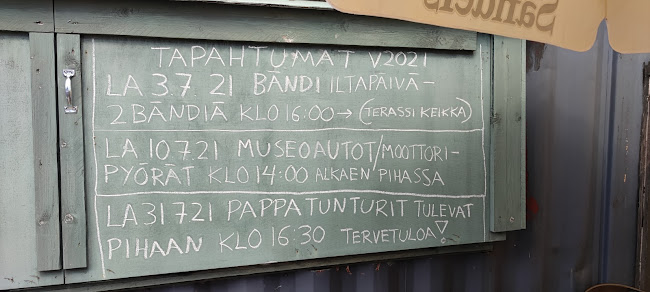 Sandels
TAPAHTUMAT V2021
LA 3.7.21 BÄNDI ILTAPÄIVÄ-
2 BÄNDIÄ KLO 16:00 → (TERASSI KEIKKA)
LA 10.7.21 MUSEOAUTOT/MOOTTORI-
PYÖRÄT KLO 14:00 ALKAEN PIHASSA
LA 31721 PAPPATUNTURIT TULEVAT
PIHAAN KLO 16:30 TERVETULOA!